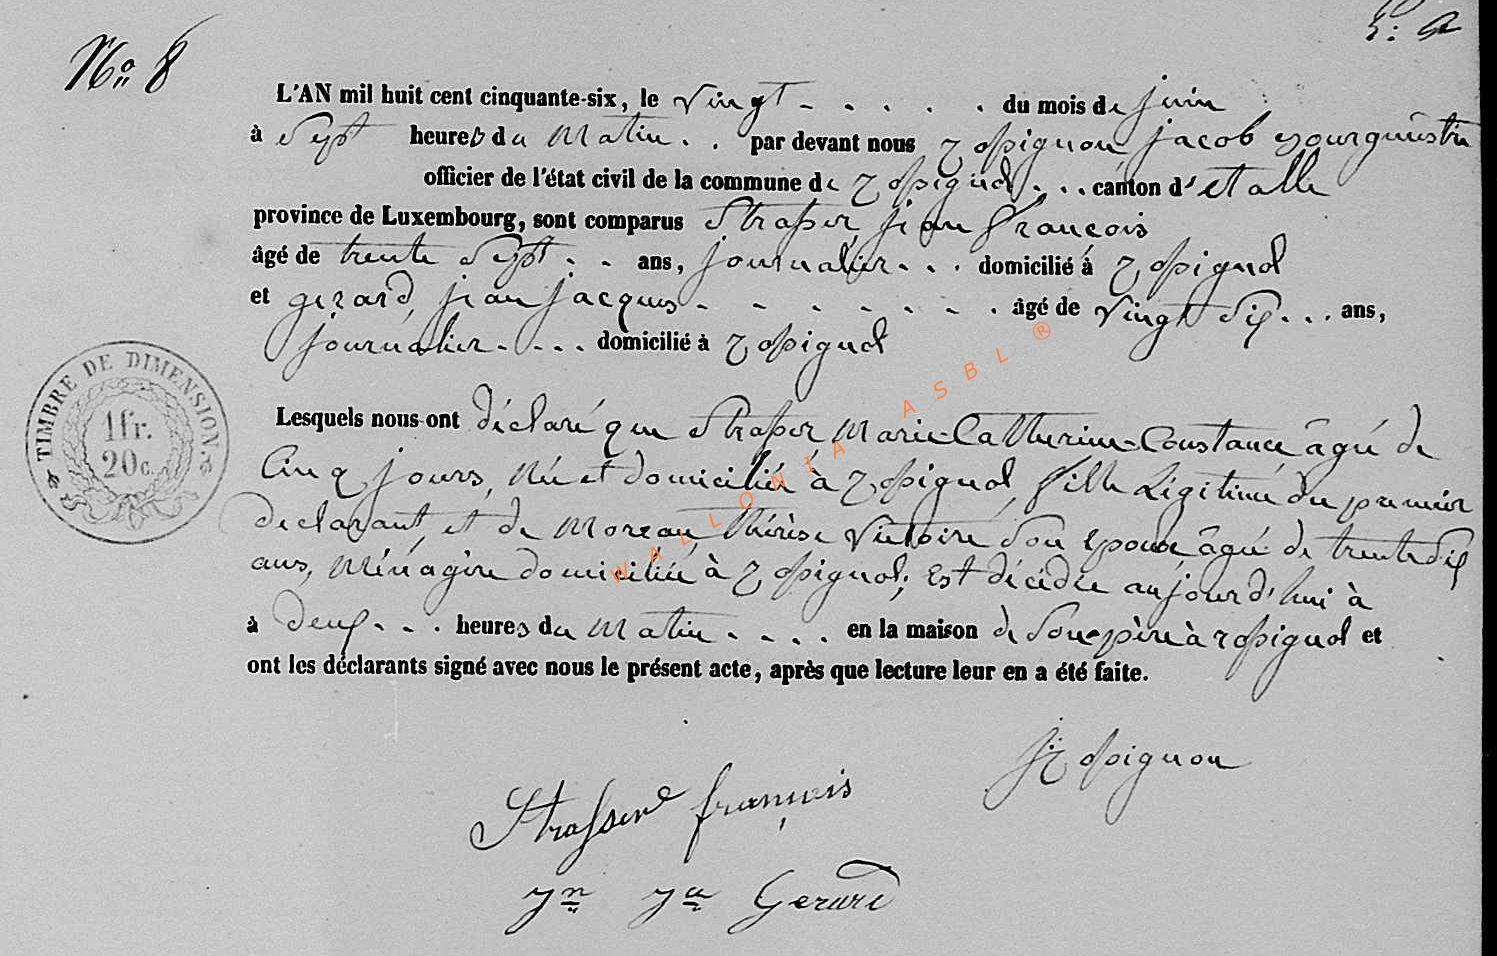 No 8
L'AN mil huit cent cinquante-six, le vingt - - - - - du mois de juin
à Sept heures du Matin - - par devant nous Rossignon, jacob Bourguestre
officier de l'état civil de la commune de Rossignol - - - canton d'etalle
province de Luxembourg, sont comparus Strasser, jean françois
âgé de trente Sept - - ans, journalier - - - domicilié à Rossignol
et gerard, jean jacques - - - - - - - - âgé de vingt Six - - - ans,
journalier - - - - domicilié à Rossignol
TIMBRE DE DIMENSION.
1fr.
20c.
Lesquels nous ont déclaré que Strasser Marie-Catherine-Constance âgée de
Cinq jours, Née et domiciliée à Rossignol, fille Légitime du premier
declarant, et de Moreau, thérèse Victoire Son épouse âgée de trente Six
ans, Ménagère domiciliée à Rossignol; Est décédée aujourd'hui à
à Deux - - - heures du Matin - - - - en la maison de Son père à Rossignol et
ont les déclarants signé avec nous le présent acte, après que lecture leur en a été faite.
J: Rossignon
Strasser françois
Jn Ja Gerard
WALLONIA ASBL ®